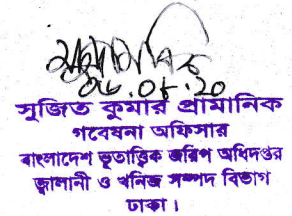 ০৮.০৮.২০
সুজিত কুমার প্রামানিক
গবেষনা অফিসার
বাংলাদেশ ভূতাত্ত্বিক জরিপ অধিদপ্তর
জ্বালানী ও খনিজ সম্পদ বিভাগ
ঢাকা।